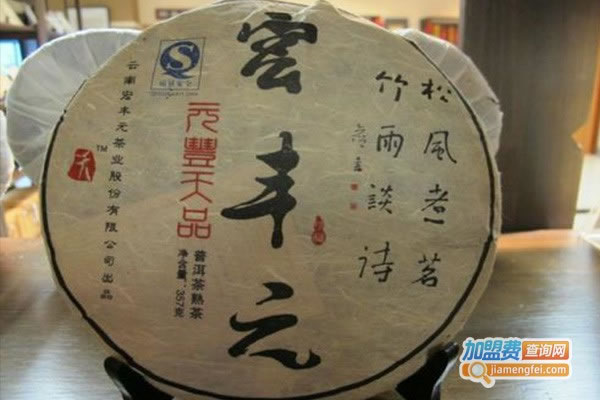 松風煮茗
竹雨談诗
宏丰元
元豐天品
普洱茶熟茶
净含量:357克
质量安全
云南宏丰元茶业股份有限公司出品
天
TM
加盟费查询网
jiamengfei.com